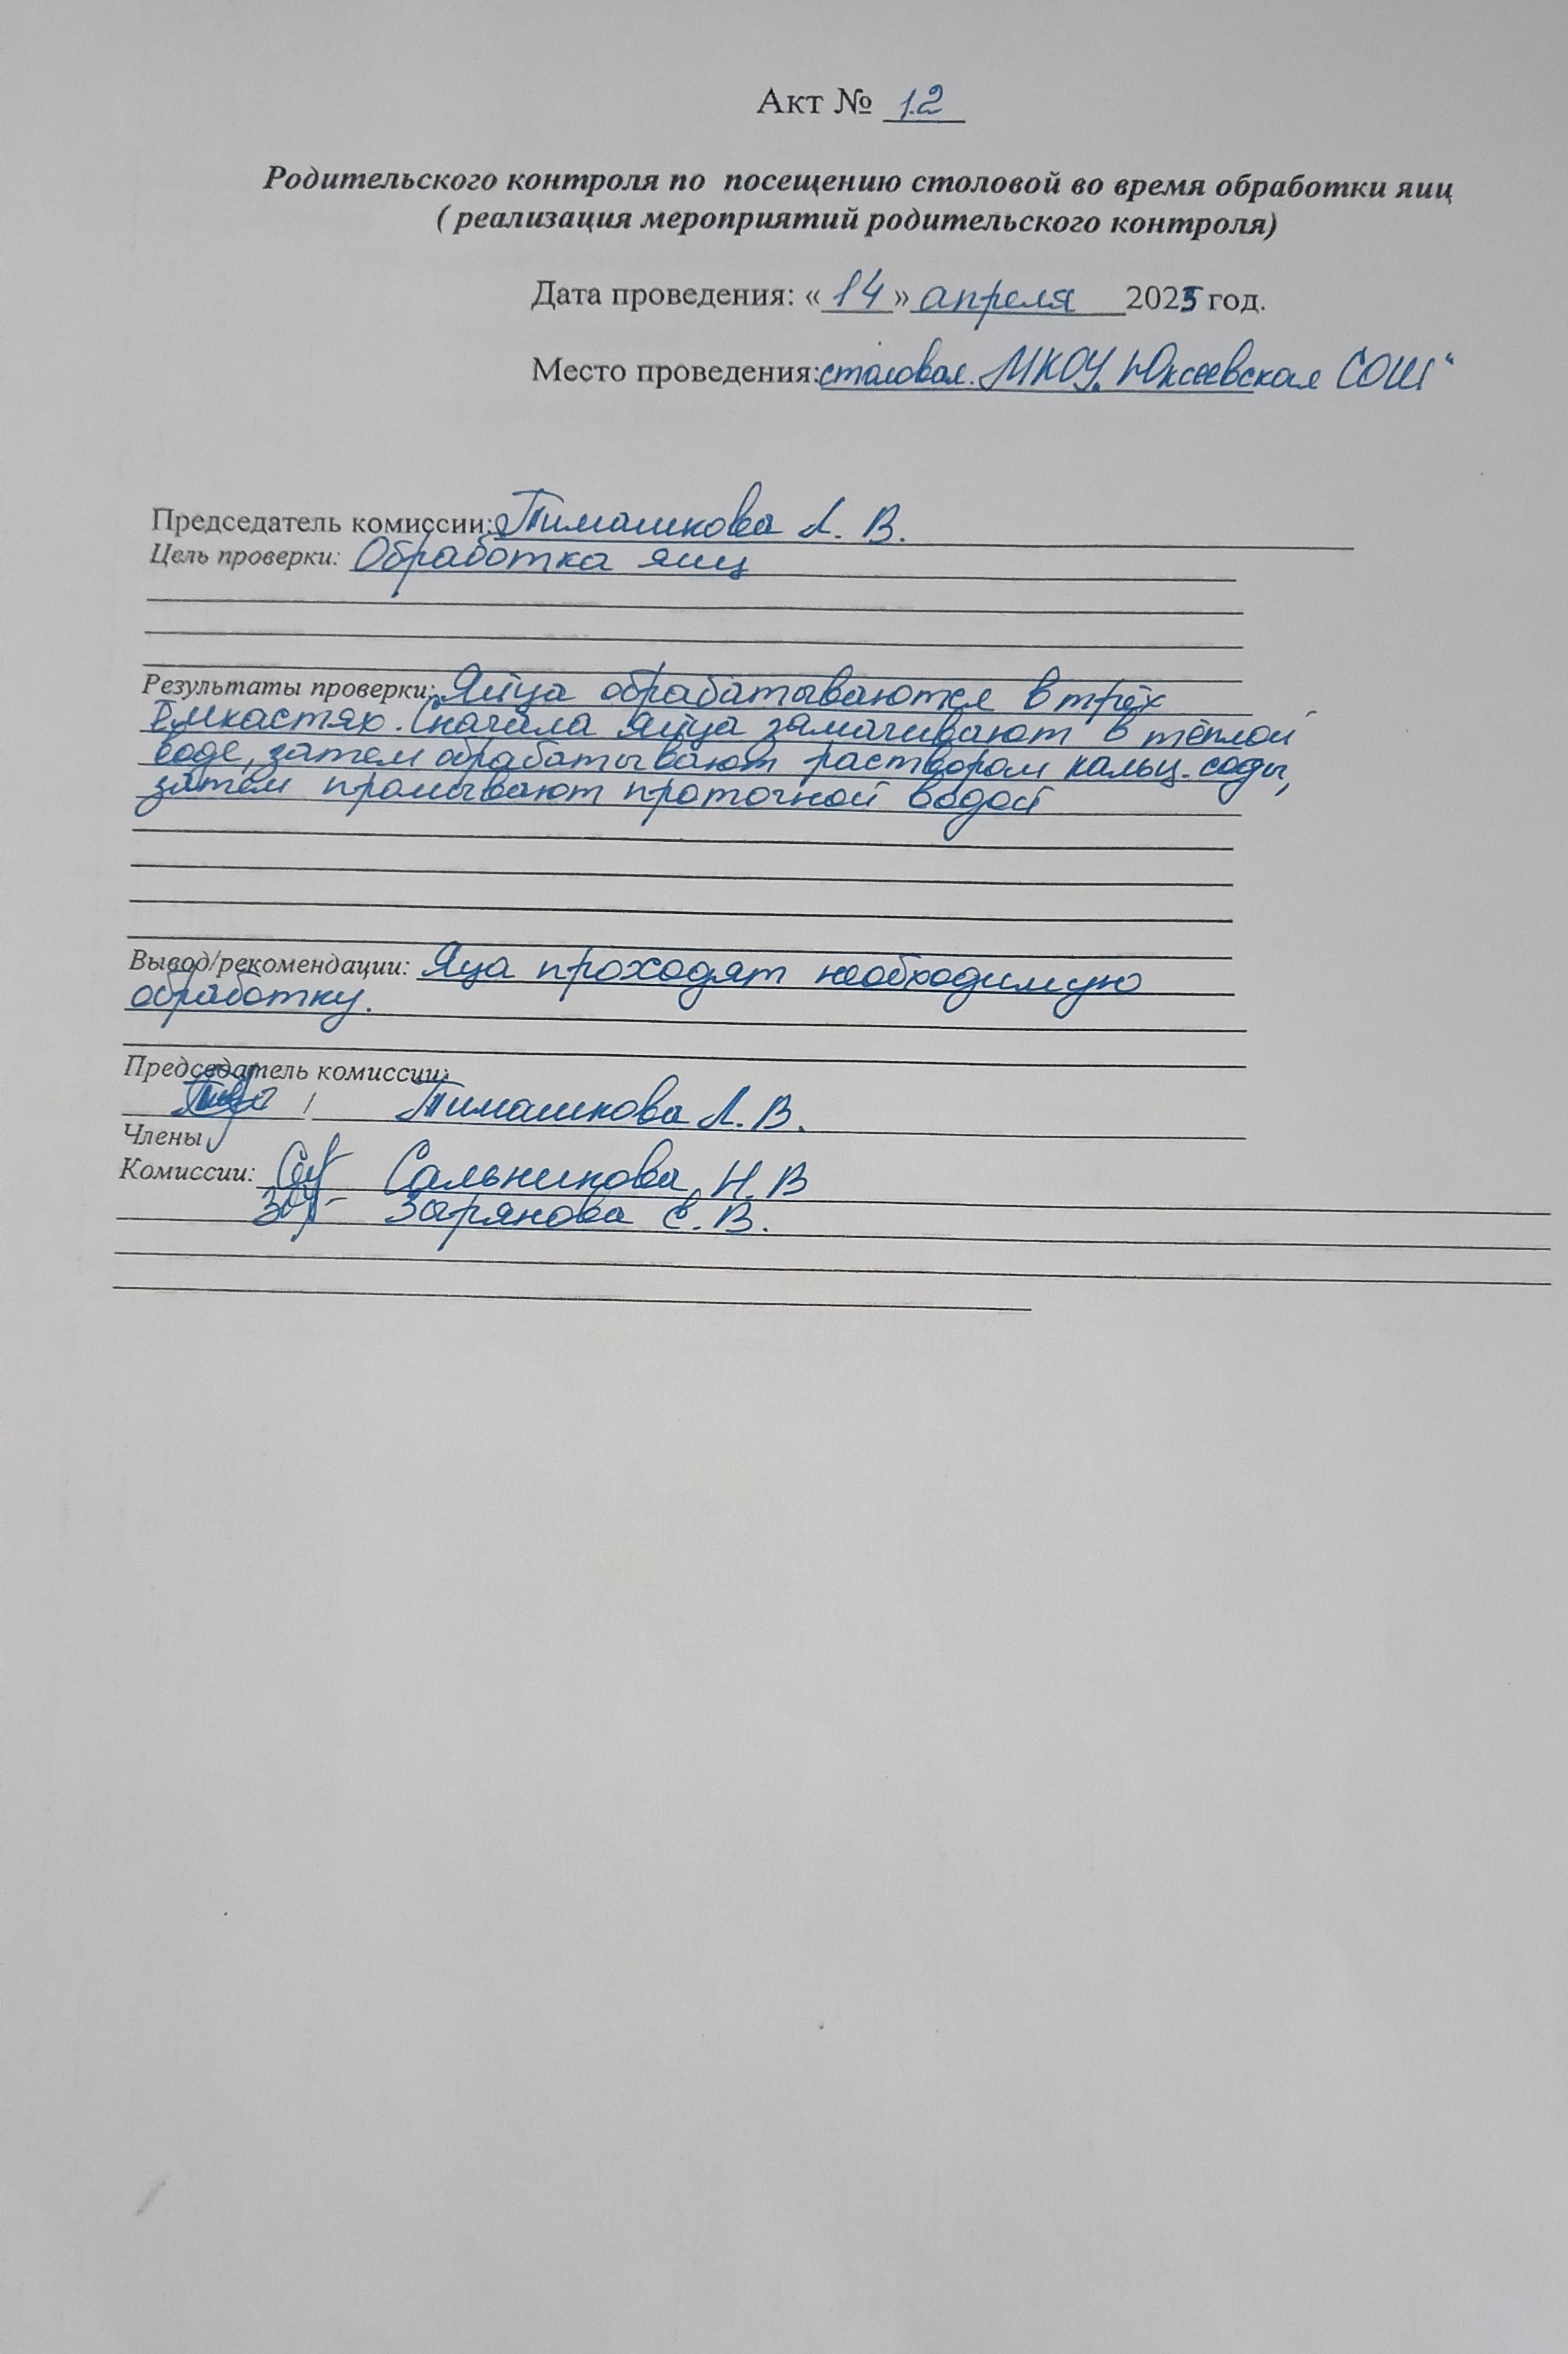 Акт № 12
Родительского контроля по посещению столовой во время обработки яиц
( реализация мероприятий родительского контроля)
Дата проведения: «14» апреля 2025 год.
Место проведения: столовая МКОУ „Юксеевская СОШ“
Председатель комиссии: Тимашкова Л. В.
Цель проверки: Обработка яиц
Результаты проверки: Яйца обрабатываются в трёх
ёмкастях. Сначала яйца замачивают в тёплой
воде, затем обрабатывают раствором кальц. соды,
затем промывают проточной водой
Вывод/рекомендации: Яца проходят необходимую
обработку.
Председатель комиссии:
/ Тимашкова Л. В.
Члены
Комиссии: Сальникова Н. В
Зырянова Е. В.